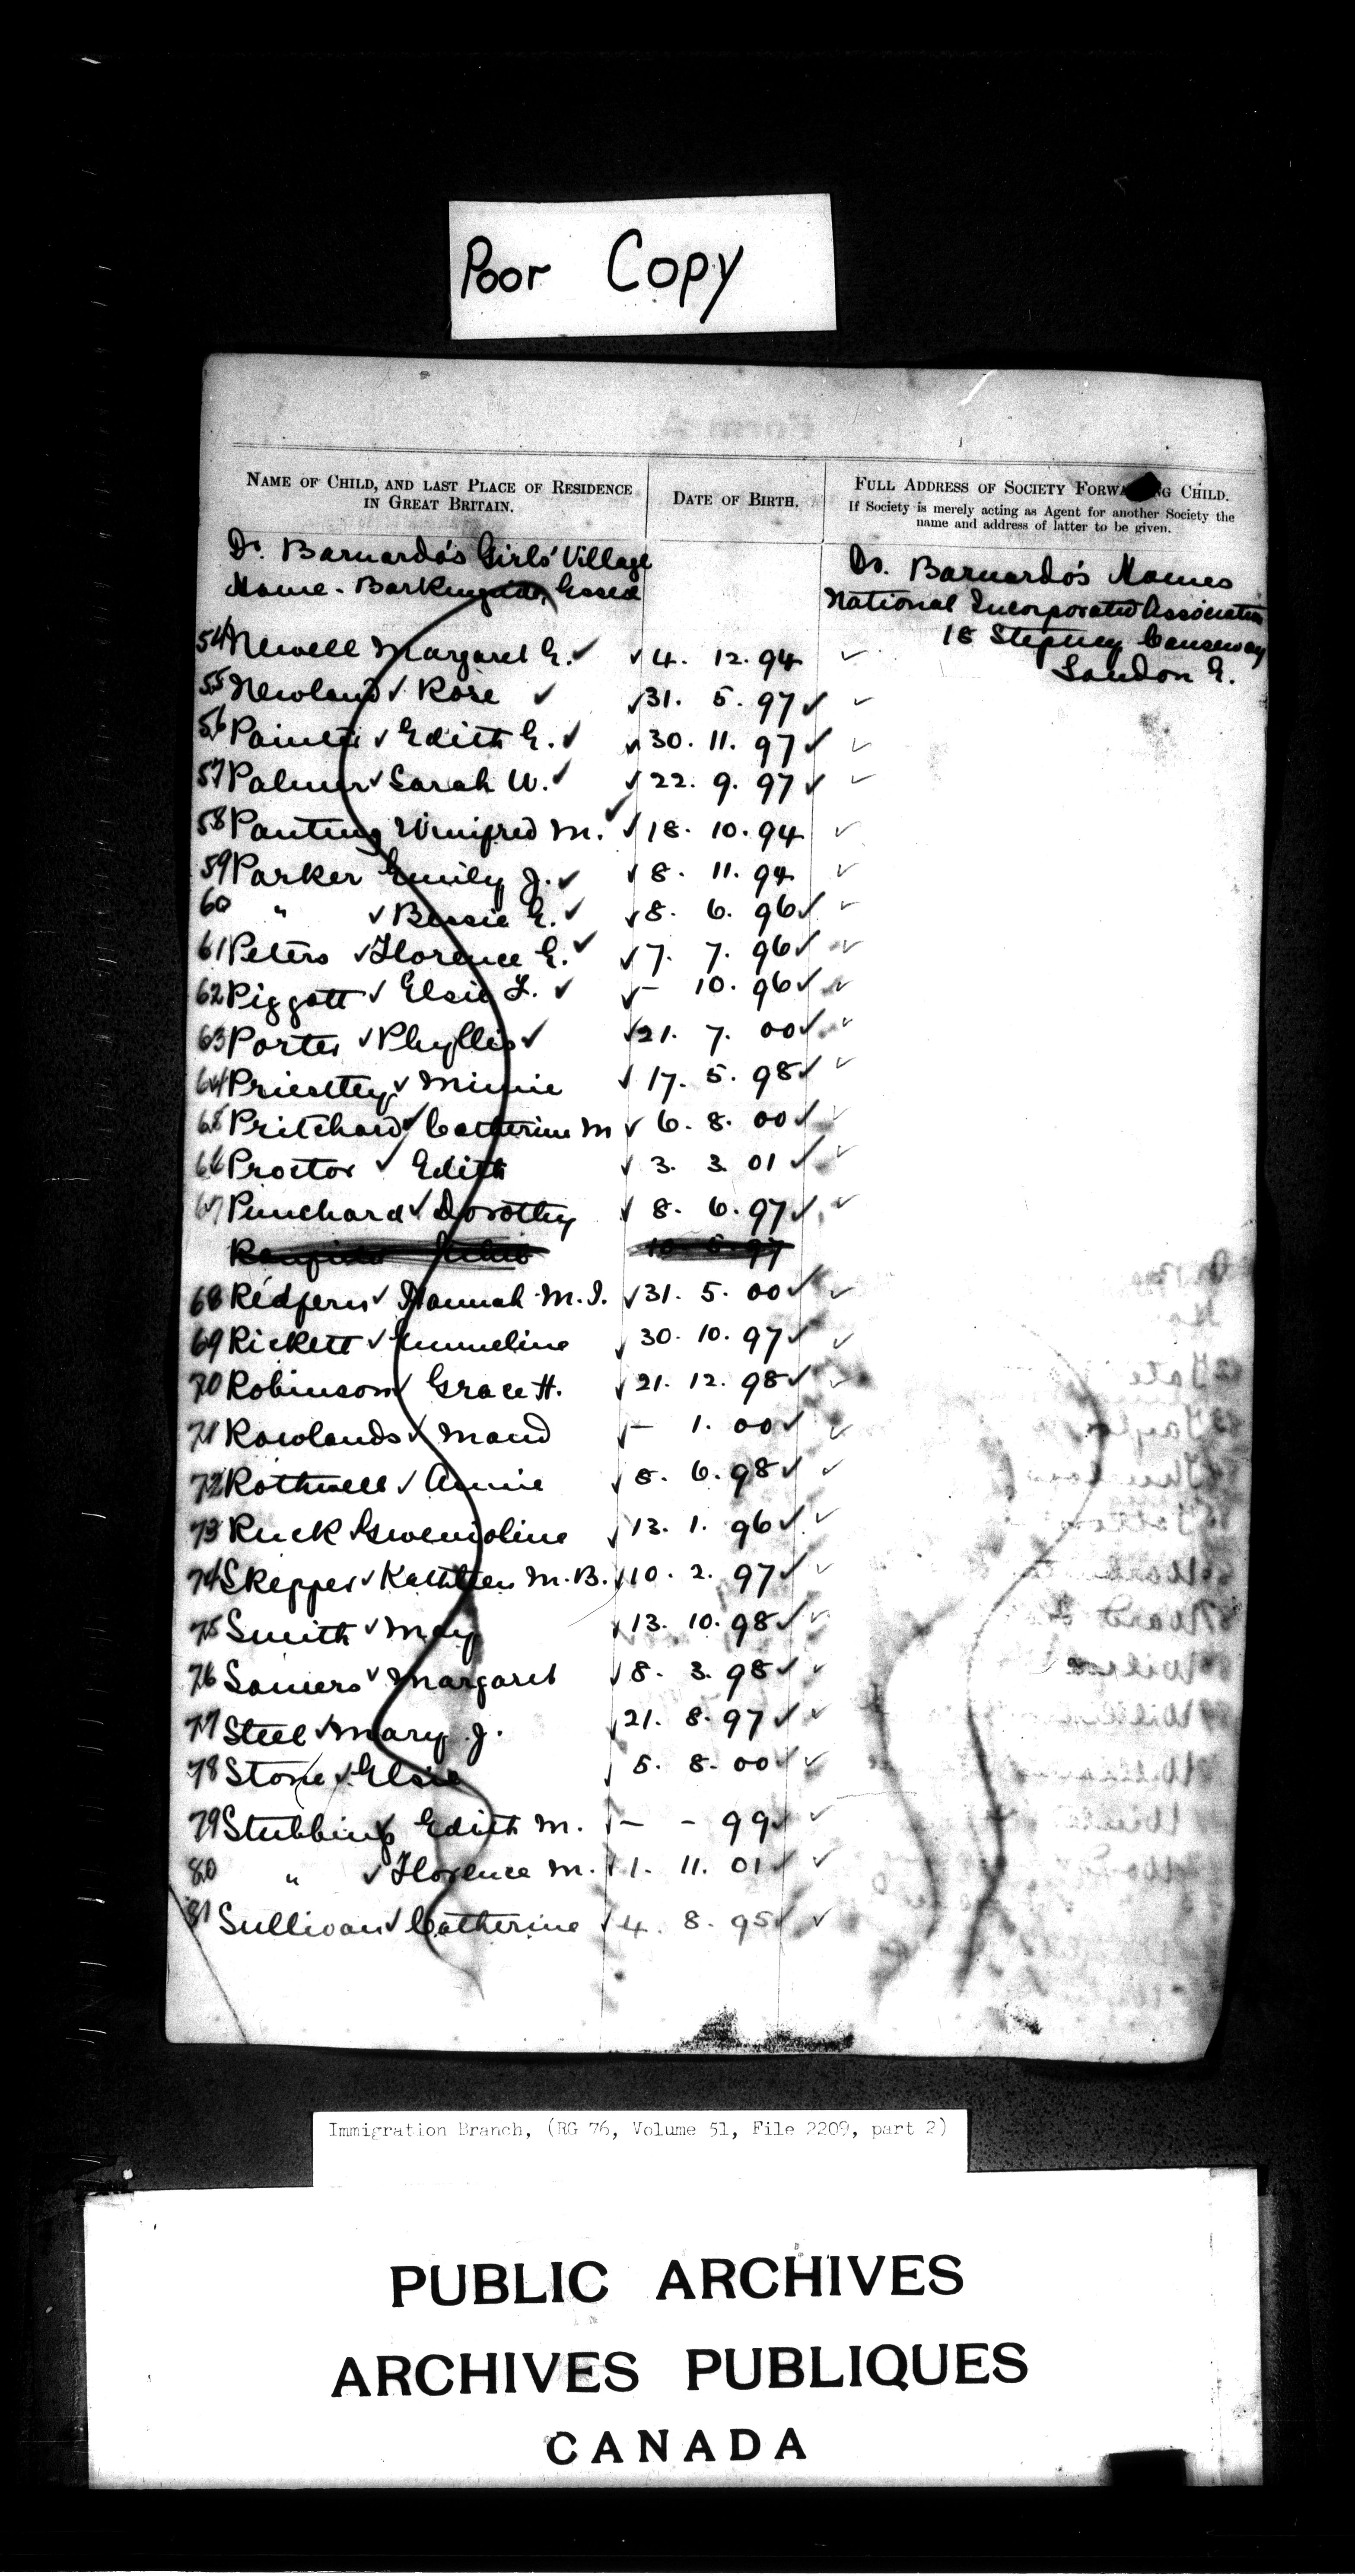 Poor Copy
NAME OF CHILD, AND LAST PLACE OF RESIDENCE
IN GREAT BRITAIN.
DATE OF BIRTH.
FULL ADDRESS OF SOCIETY FORWARDING CHILD.
If Society is merely acting as Agent for another Society the
name and address of latter to be given.
Dr. Barnardo's Girls' Village
Home - Barkingside, Essex
Dr. Barnardo's Homes
National Incorporated Association
18 Stepney Causeway
London E.
54 Newell Margaret E. 4. 12. 94
55 Newland Rose 31. 5. 97
56 Painter Edith E. 30. 11. 97
57 Palmer Sarah W. 22. 9. 97
58 Panting Winifred M. 18. 10. 94
59 Parker Emily J. 8. 11. 94
60 " Bessie E. 8. 6. 96
61 Peters Florence E. 7. 7. 96
62 Piggott Elsie F. - 10. 96
63 Porter Phyllis 21. 7. 00
64 Priestley Minnie 17. 5. 98
65 Pritchard Catherine M 6. 8. 00
66 Proctor Edith 3. 3. 01
67 Punchard Dorothy 8. 6. 97
68 Redfern Hannah M. I. 31. 5. 00
69 Rickett Emmeline 30. 10. 97
70 Robinson Grace H. 21. 12. 98
71 Rowlands Maud - 1. 00
72 Rothwell Annie 8. 6. 98
73 Ruck Gwendoline 13. 1. 96
74 Skepper Kathleen M. B. 10. 2. 97
75 Smith May 13. 10. 98
76 Somers Margaret 8. 3. 98
77 Steel Mary J. 21. 8. 97
78 Stone Elsie 5. 8. 00
79 Stubbings Edith M. - - 99
80 " Florence M. 1. 11. 01
81 Sullivan Catherine 4. 8. 95
Immigration Branch, (RG 76, Volume 51, File 2209, part 2)
PUBLIC ARCHIVES
ARCHIVES PUBLIQUES
CANADA